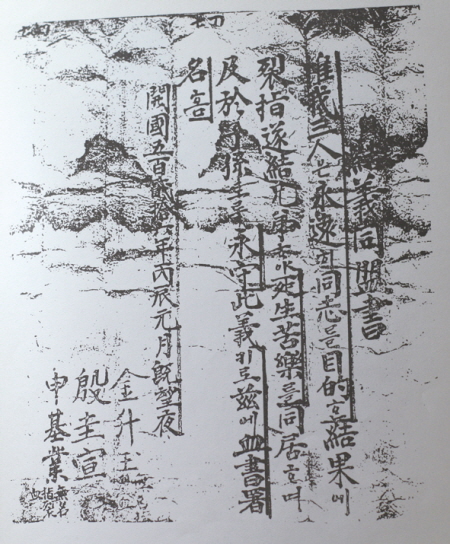 結義同盟書
惟我三人은永遠히同志를目的한結果에
裂指遂結兄弟하야死生苦樂을同居하며
及於子孫토록永守此義키로玆에血書署
名홈
開國五百貳拾 年丙辰元月既望夜
金升
殷圭宣
申基業
無名指